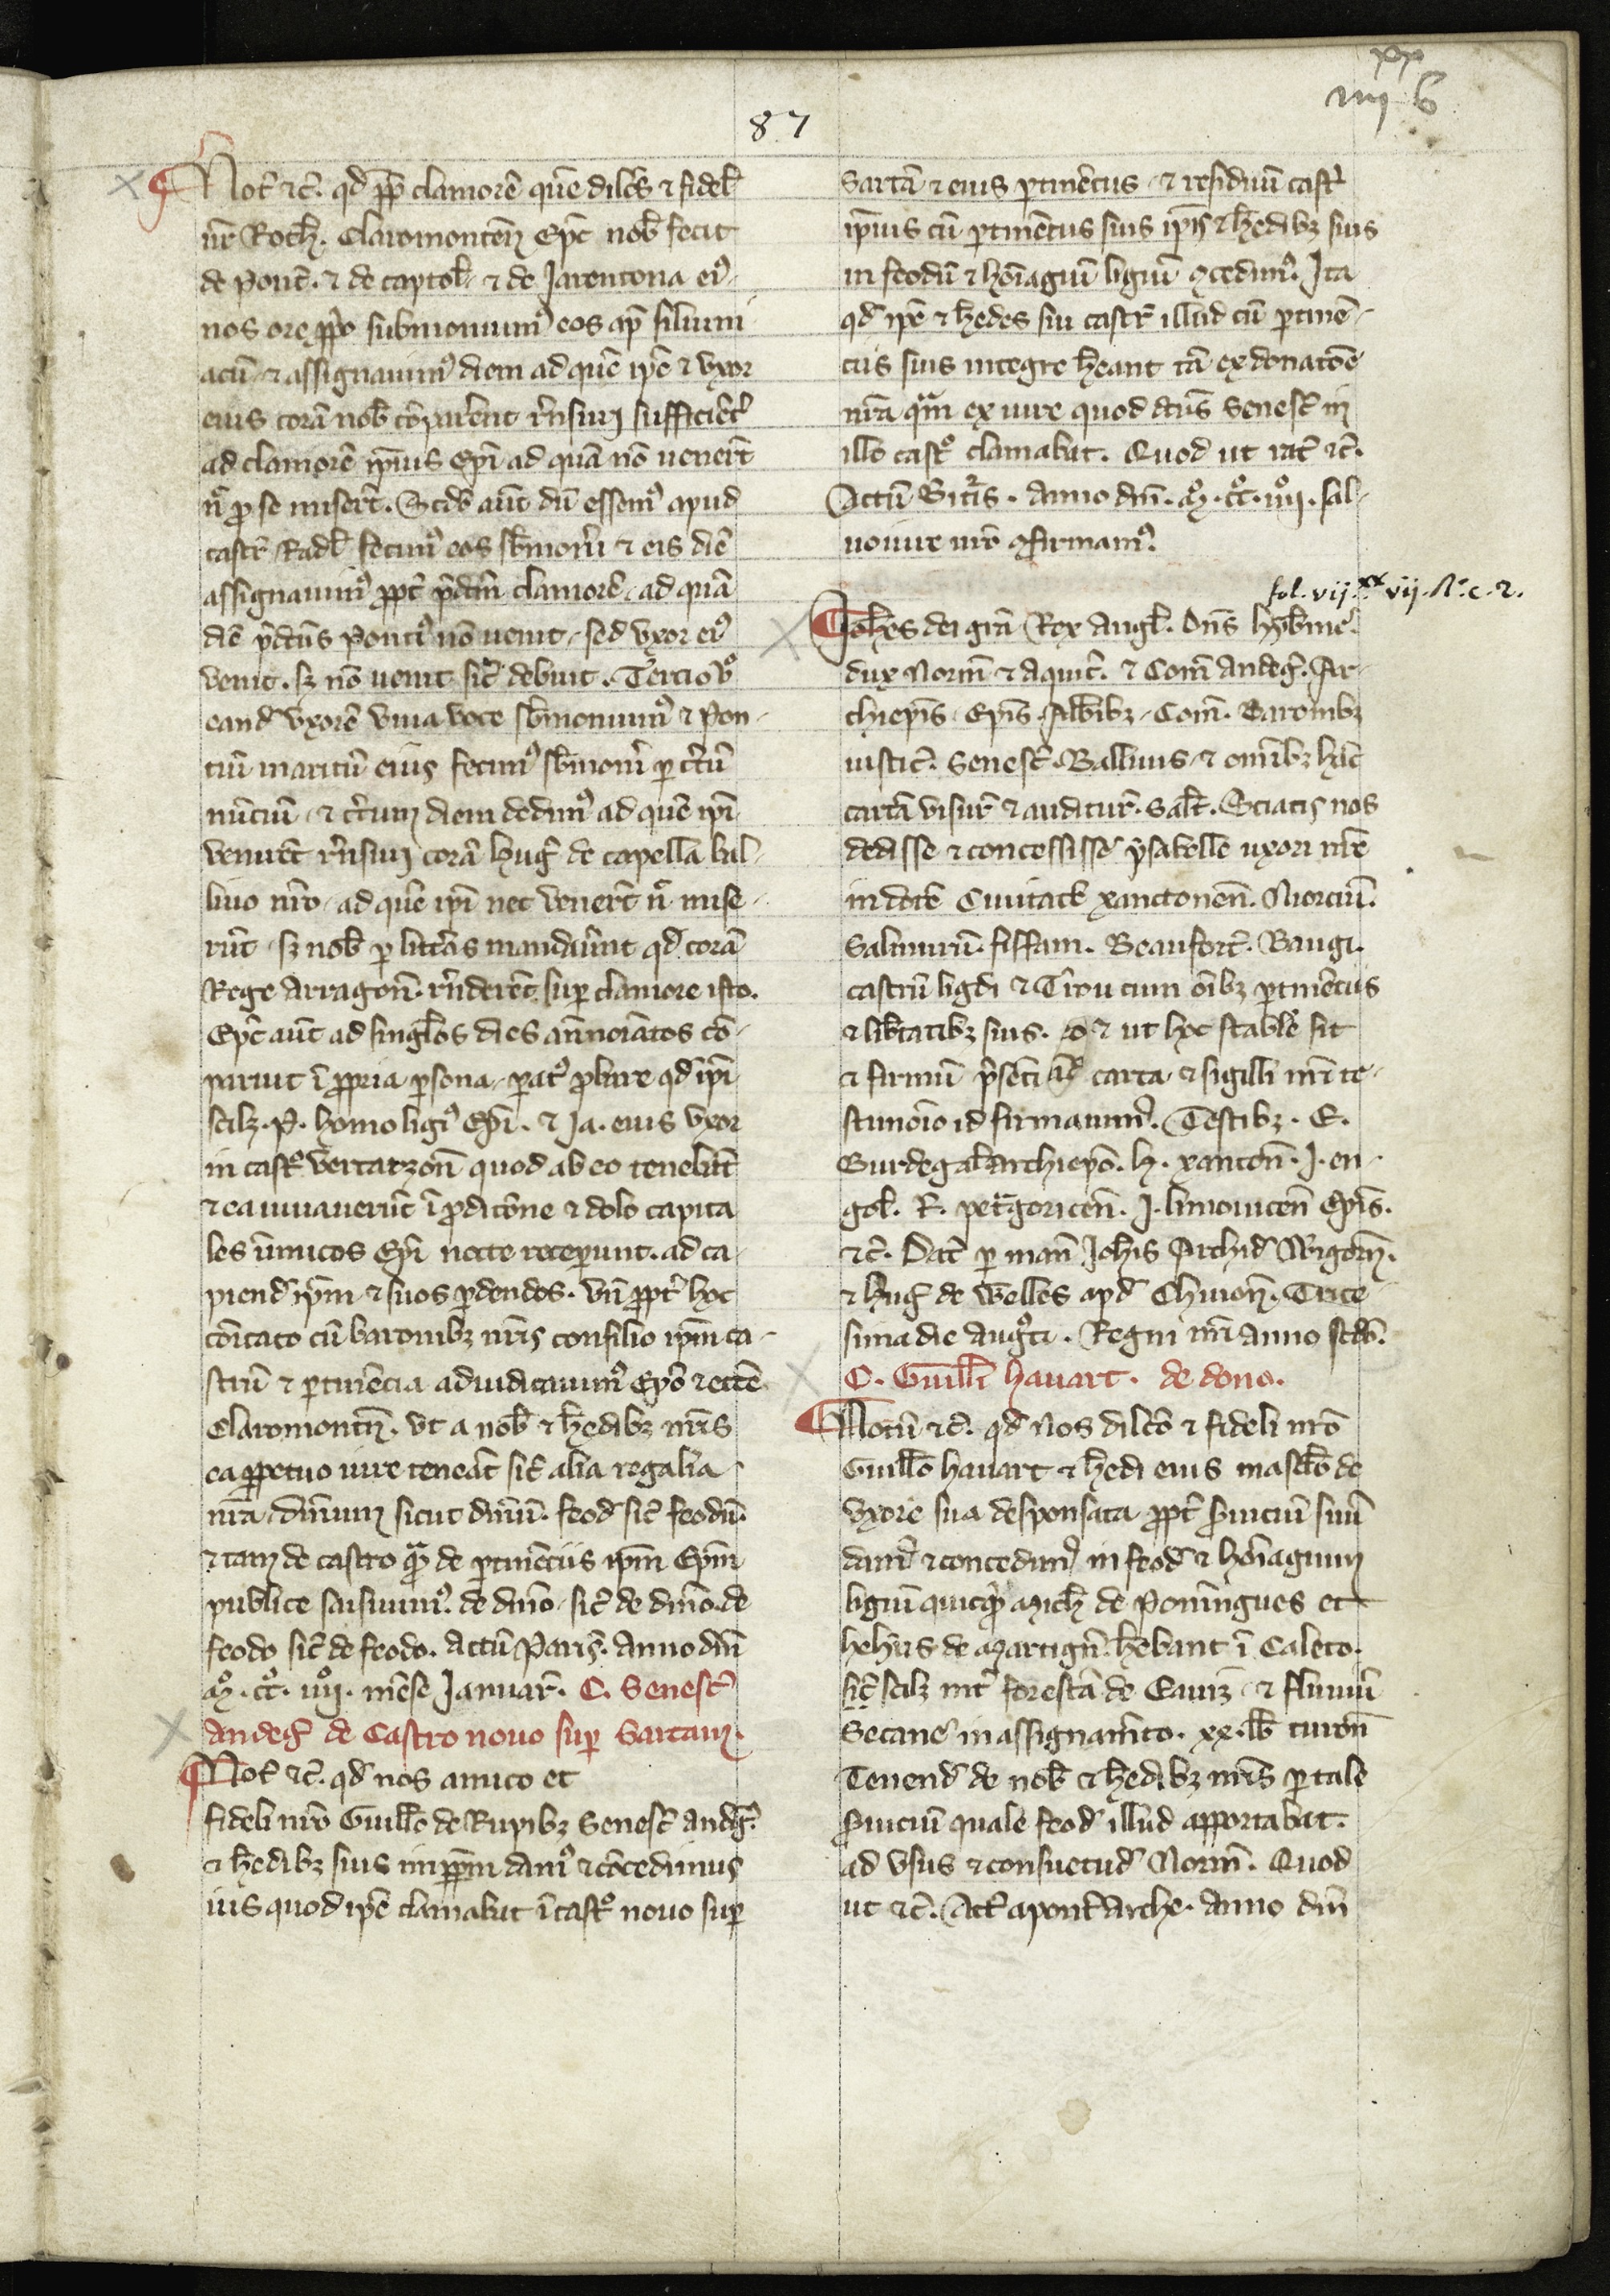 xx
iiij 6
87
Not̄ ⁊c̄. qd̄ ꝓpt̄ clamorē quē dilc̄s ⁊ fidel̄
nr̄ Rotb̄. Claromontēn Ep̄c nob̄ fecit
de Ponc̄. ⁊ de captol̄. ⁊ de Jarentona eiꝰ.
nos ore ꝓp̄o submonuimꝰ eos ap̄ siluini
acū. ⁊ assignauimꝰ diem ad quē ip̄e ⁊ vxor
eius corā nob̄ cōparerēt rn̄suri sufficiēt̄
ad clamorē ip̄ius Ep̄i ad quā nō uenerūt
n̄ ꝓ se miserūt. Scd̄o aūt dū essemꝰ apud
castr̄ Radl̄ fecimꝰ eos sb̄monēri ⁊ eis diē
assignauimꝰ ꝓpt̄ p̄dc̄m clamorē. ad quā
diē p̄dc̄us Ponciꝰ nō uenit. sed vxor eiꝰ
venit. sꝫ nō uenit sic̄ debuit. Tercio v̊
eand̄ vxorē viua voce sb̄monuimꝰ ⁊ Pon-
ciū maritū eius fecimꝰ sb̄monēri ꝑ cer̄tū
nūciū. ⁊ cer̄tum diem dedimꝰ ad quē ip̄i
venirēt rn̄suri corā huḡ de capella bal-
liuo nr̄o. ad quē ip̄i nec venerūt n̄ mise-
rūt. sꝫ nob̄ ꝑ litt̄as mandauerūt qd̄ corā
Rege arragonū. rn̄derēt sup̄ clamore isto.
Ep̄c aūt ad singl̄os dies an̄noiatos cō-
paruit ī ꝓpria ꝑsona. ꝑatꝰ ꝓbare qd̄ ip̄i
scilꝫ. P. homo ligiꝰ Ep̄i. ⁊ Ja. eius vxor
in castr̊ vertatzon̄ quod ab eo tenebāt
⁊ ea iuuauerūt ī ꝓditōne ⁊ dolo capita
les īimicos Ep̄i nocte receperunt. ad ca-
piend̄ ip̄m ⁊ suos ꝑdendos. vn̄ ꝓpt̄ hoc
cōicato cū baronibꝫ nr̄is consilio ip̄m ca-
strū ⁊ ꝑtinēcia adiudicauimꝰ Ep̄o ⁊ ecc̄e
Claromontn̄. vt a nob̄ ⁊ h̄edibꝫ nr̄is
ea ꝑpetuo iure teneāt sic̄ alia regalia
nr̄a. dn̄ium sicut dn̄iū. feod̄ sic̄ feodū.
⁊ tam de castro qᵃ̄ de ꝑtinēciis ip̄m Ep̄m
publice saisiuimꝰ. de dn̄io. sic̄ de dn̄io. de
feodo sic̄ de feodo. Actū Paris̄. Anno dn̄i
M̊. cc̊. iiij̊. mēse Januar̄. C. Senesc̄
andeḡ de Castro nouo sup̄ Sartam.
Not̄ ⁊c̄. qd̄ nos amico et
fideli nr̄o Guill̄o de Rupibꝫ Senesc̄ andeḡ.
⁊ h̄edibꝫ suis in ꝑpm̄ damꝰ ⁊ cōcedimus
ius quod ip̄e clamabat ī castr̊ nouo sup̄
Sartā ⁊ eius ꝑtinētiis. ⁊ residuū castri
ip̄ius cū ꝑtinētiis suis ip̄is ⁊ h̄edibꝫ suis
in feodū ⁊ hōiagiū ligiū ꝯcedimꝰ. Ita
qd̄ ip̄e ⁊ h̄edes sui castr̄ illud cū ꝑtinē-
ciis suis integre h̄eant tā ex donatōe
nr̄a qᵃm ex iure quod dc̄us Senesc̄ in
illo castr̊ clamabat. Quod ut rat̄ ⁊c̄.
Actū Bit̄is. Anno dn̄i. M̊. cc̊. iiij̊. sal-
uo iure nr̄o ꝯfirmamꝰ.
fol. vij.ˣˣ vij. R. c. 2.
Joh̄es dei gr̄a Rex Angl̄. Dn̄s hyb̄nie.
dux Norm̄ ⁊ Aquit̄. ⁊ Com̄ andeḡ. Ar-
chiep̄is. Ep̄is. Abb̄ibꝫ. Com̄. Baronibꝫ
iustic̄. Senesc̄. Balliuis. ⁊ omībꝫ hāc
cartā visur̄ ⁊ auditur̄. Sal̄t. Sciatis nos
dedisse ⁊ concessisse ysabelle uxori nr̄e
in dotē Ciuitatē xanctonēn̄. Niorciū.
Salmurū. fissam. Beaufort̄. Baugi.
castrū ligdi ⁊ Trou cum ōibꝫ ꝑtinēciis
⁊ lib̄tatibꝫ suis. ⁊ ut hoc stabile sit
⁊ firmū p̄senti carta ⁊ sigilli nr̄i te-
stimōio id firmauimꝰ. Testibꝫ. E.
Burdegal̄ archiep̄o. h. xancton̄. J. en-
gol̄. R. pet̄goricen̄. J. limouicen̄ Ep̄is.
⁊c̄. Dat̄ ꝑ man̄ Joh̄is Archid̄ Wigorn̄.
⁊ huḡ de Welles apd̄ Chinon̄. Trice-
sima die augꝰti. Regni nr̄i anno scd̄o.
C. Guill̄i hauart. de dono.
Notū ⁊c̄. qd̄ Nos dilc̄o ⁊ fideli nr̄o
Guill̄o hauart ⁊ h̄edi eius mascl̄o de
vxore sua desponsata ꝓpt̄ ẜuiciū suū
damꝰ ⁊ concedimꝰ in feod̄ ⁊ hōiagium
ligiū quicq̄d Mich̄ de Ponīngues et
heb̄us de Martign̄ h̄ebant ī Caleto.
sic̄ scilꝫ int̄ forestā de Eauiz. ⁊ fluuiū
Secane in assignam̄to. xx. lb̄ turon̄
Tenend̄ de nob̄ ⁊ h̄edibꝫ nr̄is ꝑ tale
ẜuiciū quale feod̄ illud apportabat.
ad vsus ⁊ consuetud̄ Norm̄. Quod
ut ⁊c̄. Act̄ apont̄ Arche. Anno dn̄i